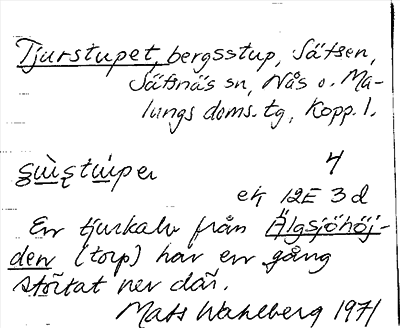 Tjurstupet, bergsstup, Sätsen,
Säfsnäs sn, Nås o. Ma-
lungs doms. tg, Kopp. l.
4
ek 12E 3d
En tjurkalv från Älgsjöhöj-
den (torp) har en gång
störtat ner där.
Mats Wahlberg 1971